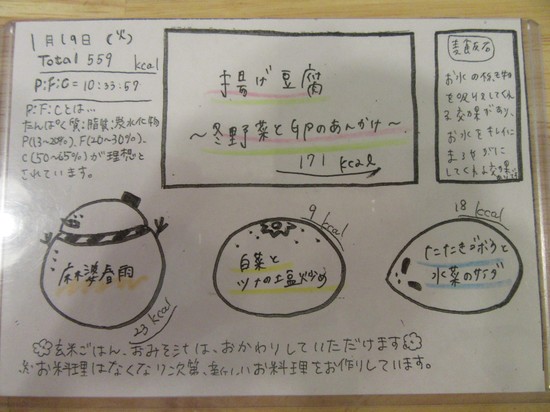 1月19日 (火)
Total 559 kcal
P:F:C = 10:33:57
P:F:Cとは…
たんぱく質:脂質:炭水化物
P(13~20%)、F(20~30%)、
C(50~65%)が理想と
されています。
揚げ豆腐
~冬野菜とGPのあんかけ~
171 kcal
麦飯石
お水の不純物
を吸ってくれ
る効果があり、
お水をキレイに
まろやかに
してくれる効果
麻婆春雨
23 kcal
白菜と
ツナの土豆炒め
9 kcal
たたきゴボウと
水菜のサラダ
18 kcal
玄米ごはん、おみそ汁は、おかわりしていただけます
お料理はなくなり次第、新しいお料理をお作りしています。